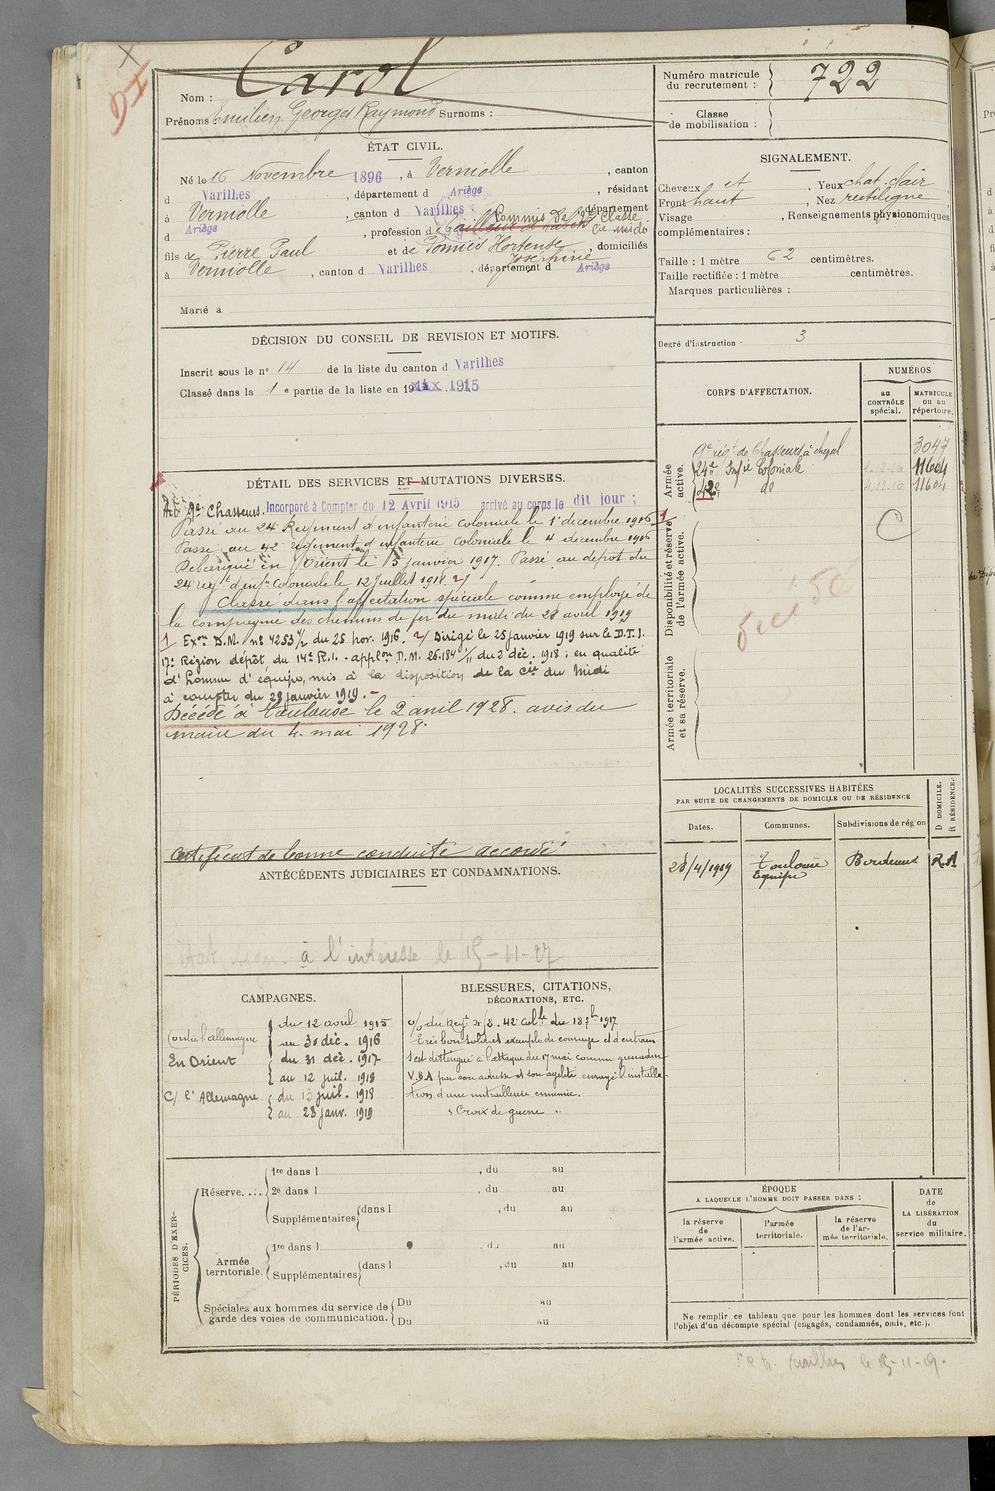 Carol
Nom :
Prénoms : Emilien Georges Raymond Surnoms :
Numéro matricule
du recrutement : 722
Classe
de mobilisation :
ÉTAT CIVIL.
Né le 16 Novembre 1896, à Verniolle, canton
d Varilhes, département d Ariège, résidant
à Verniolle, canton d Varilhes, département
d Ariège, profession de Commis de 2e Classe
Cie midi
fils de Pierre Paul et de Pomiès Hortense, domiciliés
Josephine
à Verniolle, canton d Varilhes, département d Ariège
Marié a
SIGNALEMENT.
Cheveux ct, Yeux chat. clair
Front haut, Nez rectiligne
Visage, Renseignements physionomiques
complémentaires :
Taille : 1 mètre 62 centimètres.
Taille rectifiée : 1 mètre centimètres.
Marques particulières :
Degré d'instruction · 3
DÉCISION DU CONSEIL DE REVISION ET MOTIFS.
Inscrit sous le n° 14 de la liste du canton d Varilhes
Classé dans la 1 e partie de la liste en 19 1915
CORPS D'AFFECTATION.
NUMÉROS
au
CONTRÔLE
spécial.
MATRICULE
ou au
répertoire.
Armée
active.
9e régt de Chasseurs à cheval 3047
24e Infie Coloniale 11604
42e do 11604
Disponibilité et réserve
de l'armée active.
C
Armée territoriale
et sa réserve.
DÉTAIL DES SERVICES ET MUTATIONS DIVERSES.
Au 9e Chasseurs. Incorporé à Compter du 12 Avril 1915 arrivé au corps le dit jour ;
Passé au 24 Régiment d'infanterie Coloniale le 1 décembre 1916 1
Passé au 42e régiment d'infanterie Coloniale le 4 décembre 1916
Débarqué en Orient le 5 janvier 1917. Passé au dépôt du
24 régt d'infie Coloniale le 12 juillet 1918. 2/
Classé dans l'affectation spéciale comme employé de
la Compagnie des chemins de fer du midi du 28 avril 1919
1 Exon D.M. n° 4253 1/2 du 25 nov. 1916. 2/ Dirigé le 25 janvier 1919 sur le D.T.I.
17e Région dépôt du 14e R.I. - applon D.M. 26.184 1/11 du 2 déc. 1918 ; en qualité
d'homme d'équipe, mis à la disposition de la Cie du Midi
à compter du 28 janvier 1919. -
Décédé à Toulouse le 2 avril 1928. avis du
maire du 4. mai 1928.
Certificat de bonne conduite accordé
LOCALITÉS SUCCESSIVES HABITÉES
PAR SUITE DE CHANGEMENTS DE DOMICILE OU DE RÉSIDENCE
Dates. Communes. Subdivisions de région
D DOMICILE.
R RÉSIDENCE.
28/4/1919 Toulouse Bordeaux R.A
Equipe
ANTÉCÉDENTS JUDICIAIRES ET CONDAMNATIONS.
à l'intéressé le 15-11-27
CAMPAGNES.
Contre l'allemagne du 12 avril 1915
au 30 déc. 1916
En Orient du 31 déc. 1917
au 12 juil. 1918
C/ l'Allemagne du 13 juil. 1918
au 28 janv. 1919
BLESSURES, CITATIONS,
DÉCORATIONS, ETC.
o/ du Regt 42e Colle du 18 7h 1917
Très bon soldat exemple de courage et d'entrain
s'est distingué à l'attaque du 17 mai comme grenadier
V.B.A par son adresse et son agilité
tion d'une mitrailleuse ennemie.
" Croix de guerre "
PÉRIODES D'EXER-
CICES.
Réserve....
1re dans l , du au
2e dans l , du au
Supplémentaires dans l , du au
Armée
territoriale.
1re dans l , du au
Supplémentaires dans l , du au
Spéciales aux hommes du service de
garde des voies de communication.
Du au
Du au
ÉPOQUE
A LAQUELLE L'HOMME DOIT PASSER DANS :
la réserve
de
l'armée active.
l'armée
territoriale.
la réserve
de l'ar-
mée territoriale.
DATE
de
LA LIBÉRATION
du
service militaire.
Ne remplir ce tableau que pour les hommes dont les services font
l'objet d'un décompte spécial (engagés, condamnés, omis, etc.).